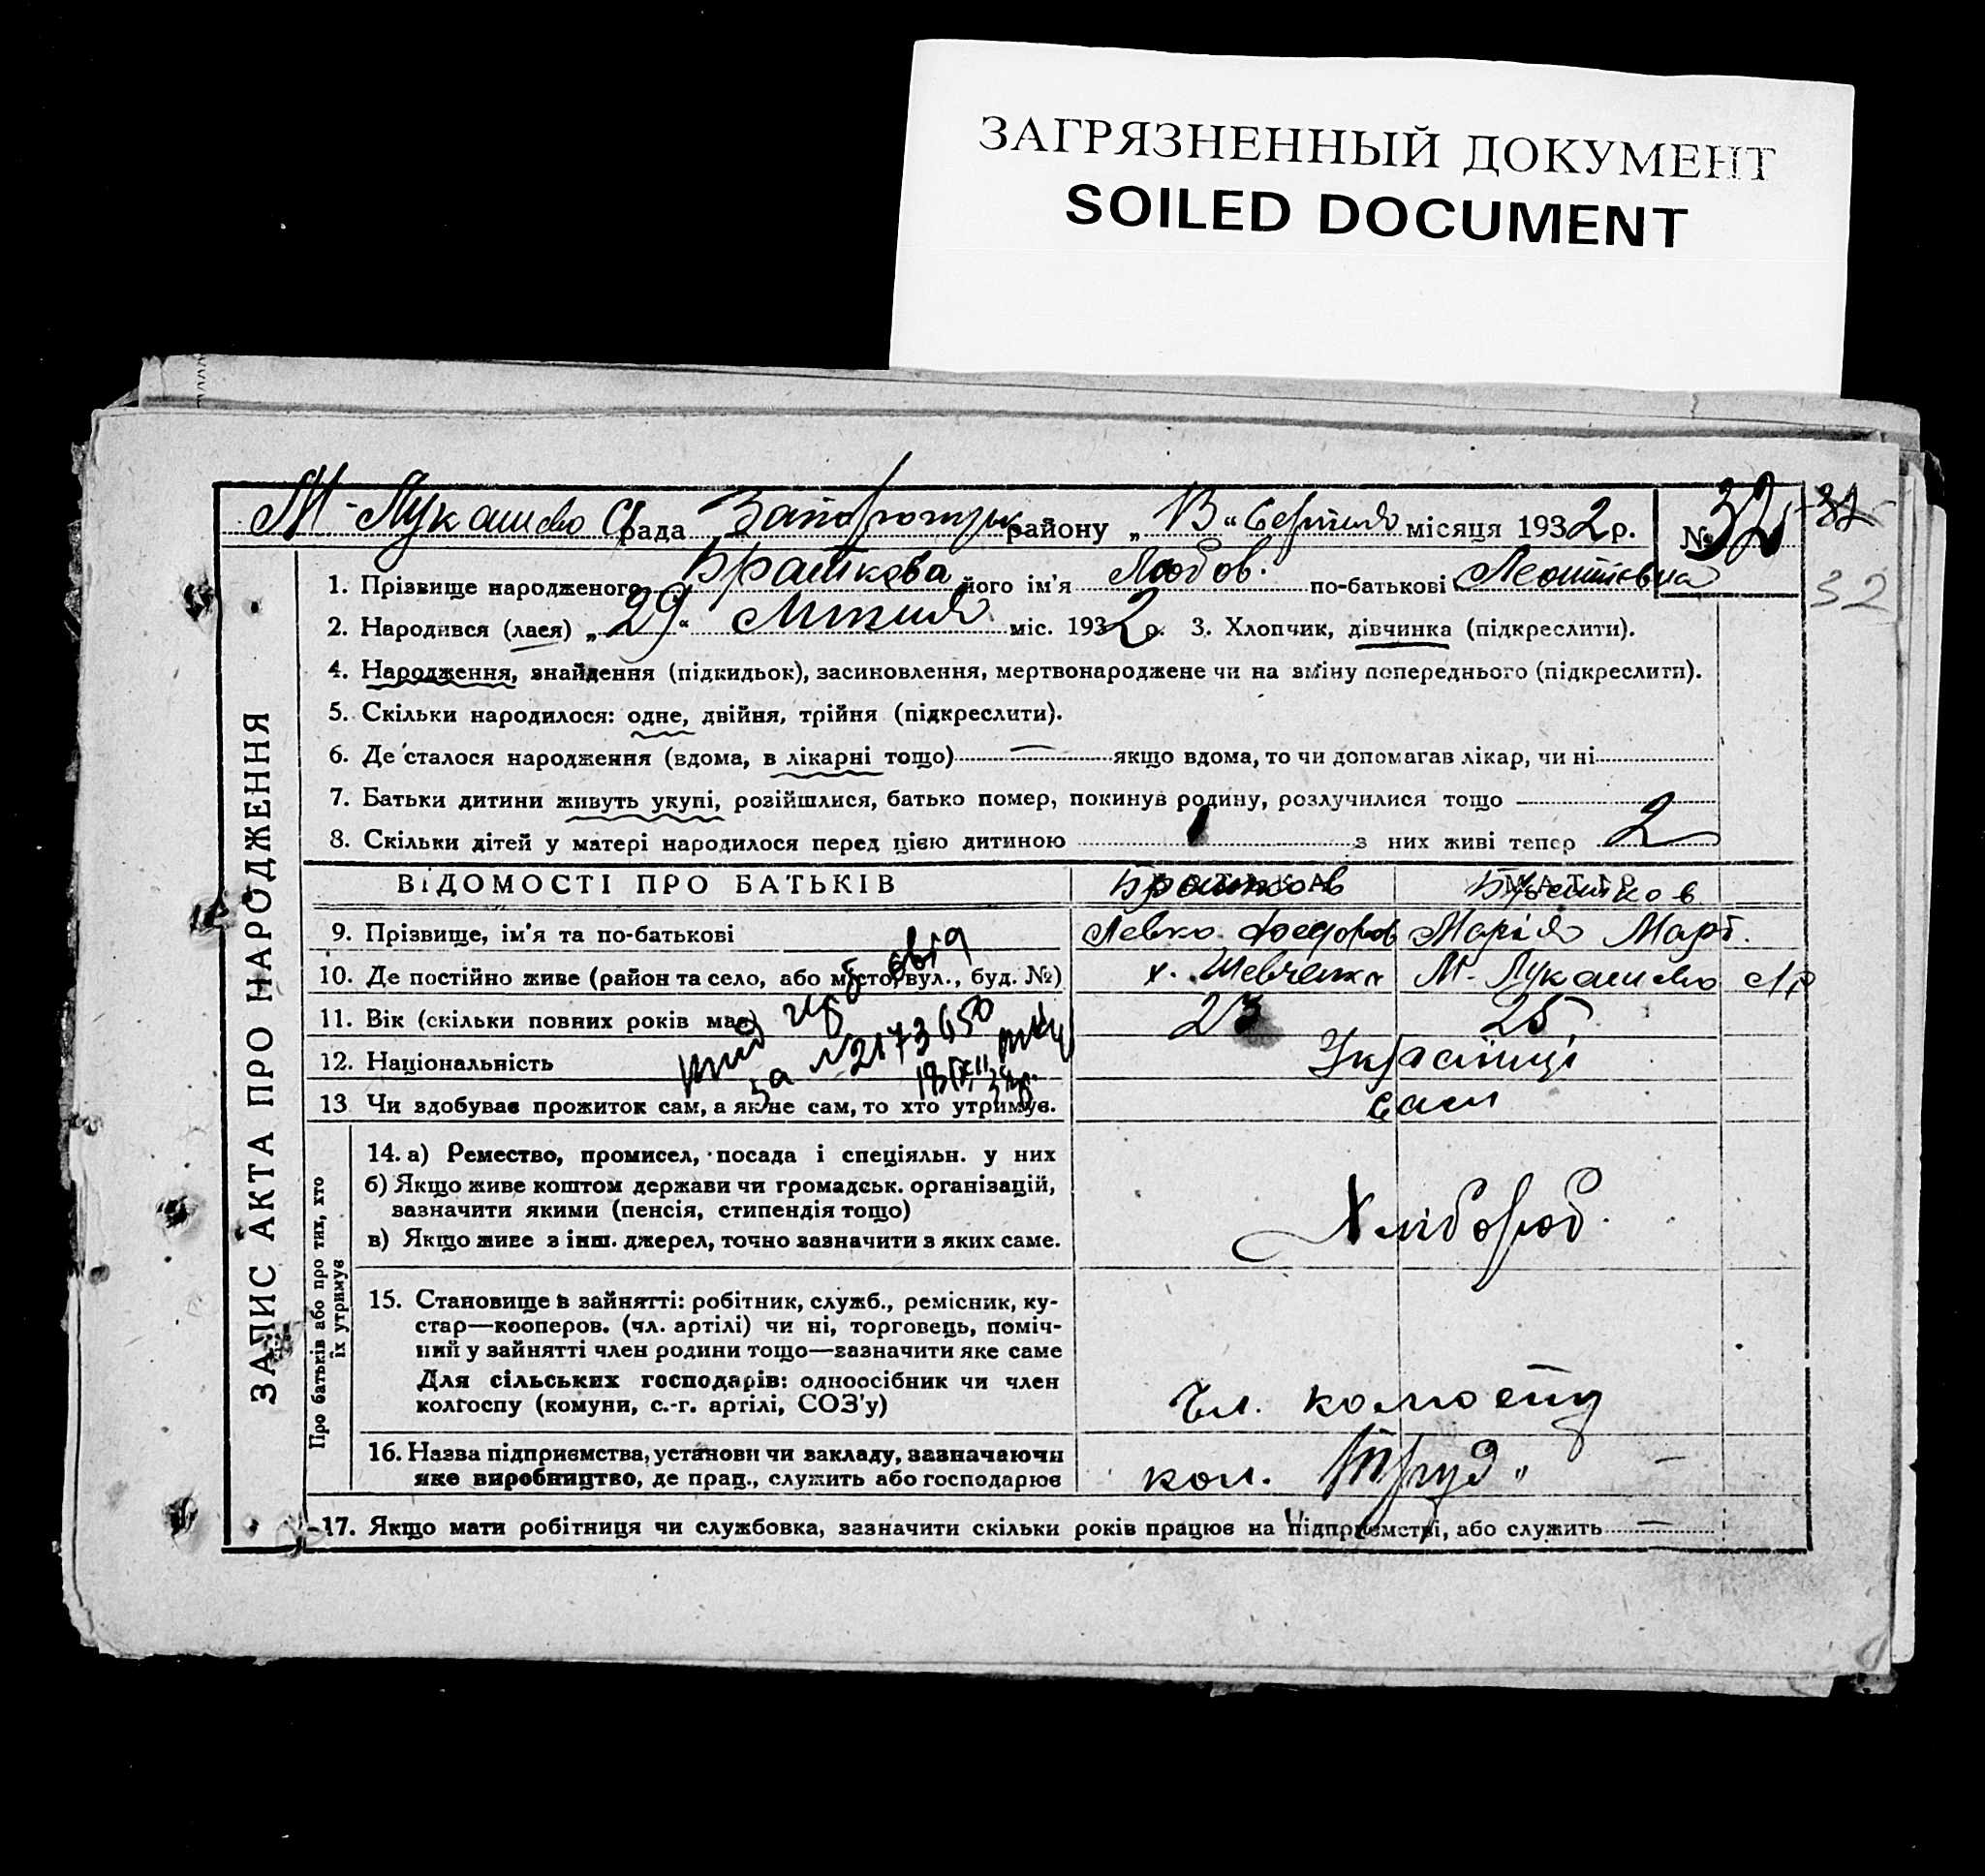 ЗАГРЯЗНЕННЫЙ ДОКУМЕНТ
SOILED DOCUMENT
М-Лукашево С/рада Запорожськ району „13" серпня місяця 1932 р. № 32
32
ЗАПИС АКТА ПРО НАРОДЖЕННЯ
1. Прізвище народженого Браткова його ім'я Любов. по-батькові Леонтіевна
2. Народився (лася) „29" Липня міс. 1932 р. 3. Хлопчик, дівчинка (підкреслити).
4. Народження, знайдення (підкидьок), засиновлення, мертвонароджене чи на зміну попереднього (підкреслити).
5. Скільки народилося: одне, двійня, трійня (підкреслити).
6. Де сталося народження (вдома, в лікарні тощо) — якщо вдома, то чи допомагав лікар, чи ні
7. Батьки дитини живуть укупі, розійшлися, батько помер, покинув родину, розлучилися тощо
8. Скільки дітей у матері народилося перед цією дитиною 1 з них живі тепер 2
ВІДОМОСТІ ПРО БАТЬКІВ Братков Братков
9. Прізвище, ім'я та по-батькові Левко Федоров Марія Март.
10. Де постійно живе (район та село, або місто, вул., буд. №) х. Шевченка М-Лукашево
11. Вік (скільки повних років має) 23 25
за №2173650
12. Національність Українці
13 Чи здобуває прожиток сам, а як не сам, то хто утримує. сами
Про батьків або про тих, хто їх утримує
14. а) Ремество, промисел, посада і спеціяльн. у них
б) Якщо живе коштом держави чи громадськ. організацій,
зазначити якими (пенсія, стипендія тощо) Хлібороб.
в) Якщо живе з інш. джерел, точно зазначити з яких саме.
15. Становище в зайнятті: робітник, служб., ремісник, ку-
стар—кооперов. (чл. артілі) чи ні, торговець, поміч-
ний у зайнятті член родини тощо—зазначити яке саме
Для сільських господарів: одноосібник чи член
колгоспу (комуни, с.-г. артілі, СОЗ'у) Чл. колгоспу
16. Назва підприємства, установи чи закладу, зазначаючи
яке виробництво, де прац., служить або господарює кол. Труд" —
17. Якщо мати робітниця чи службовка, зазначити скільки років працює на підприємстві, або служить —